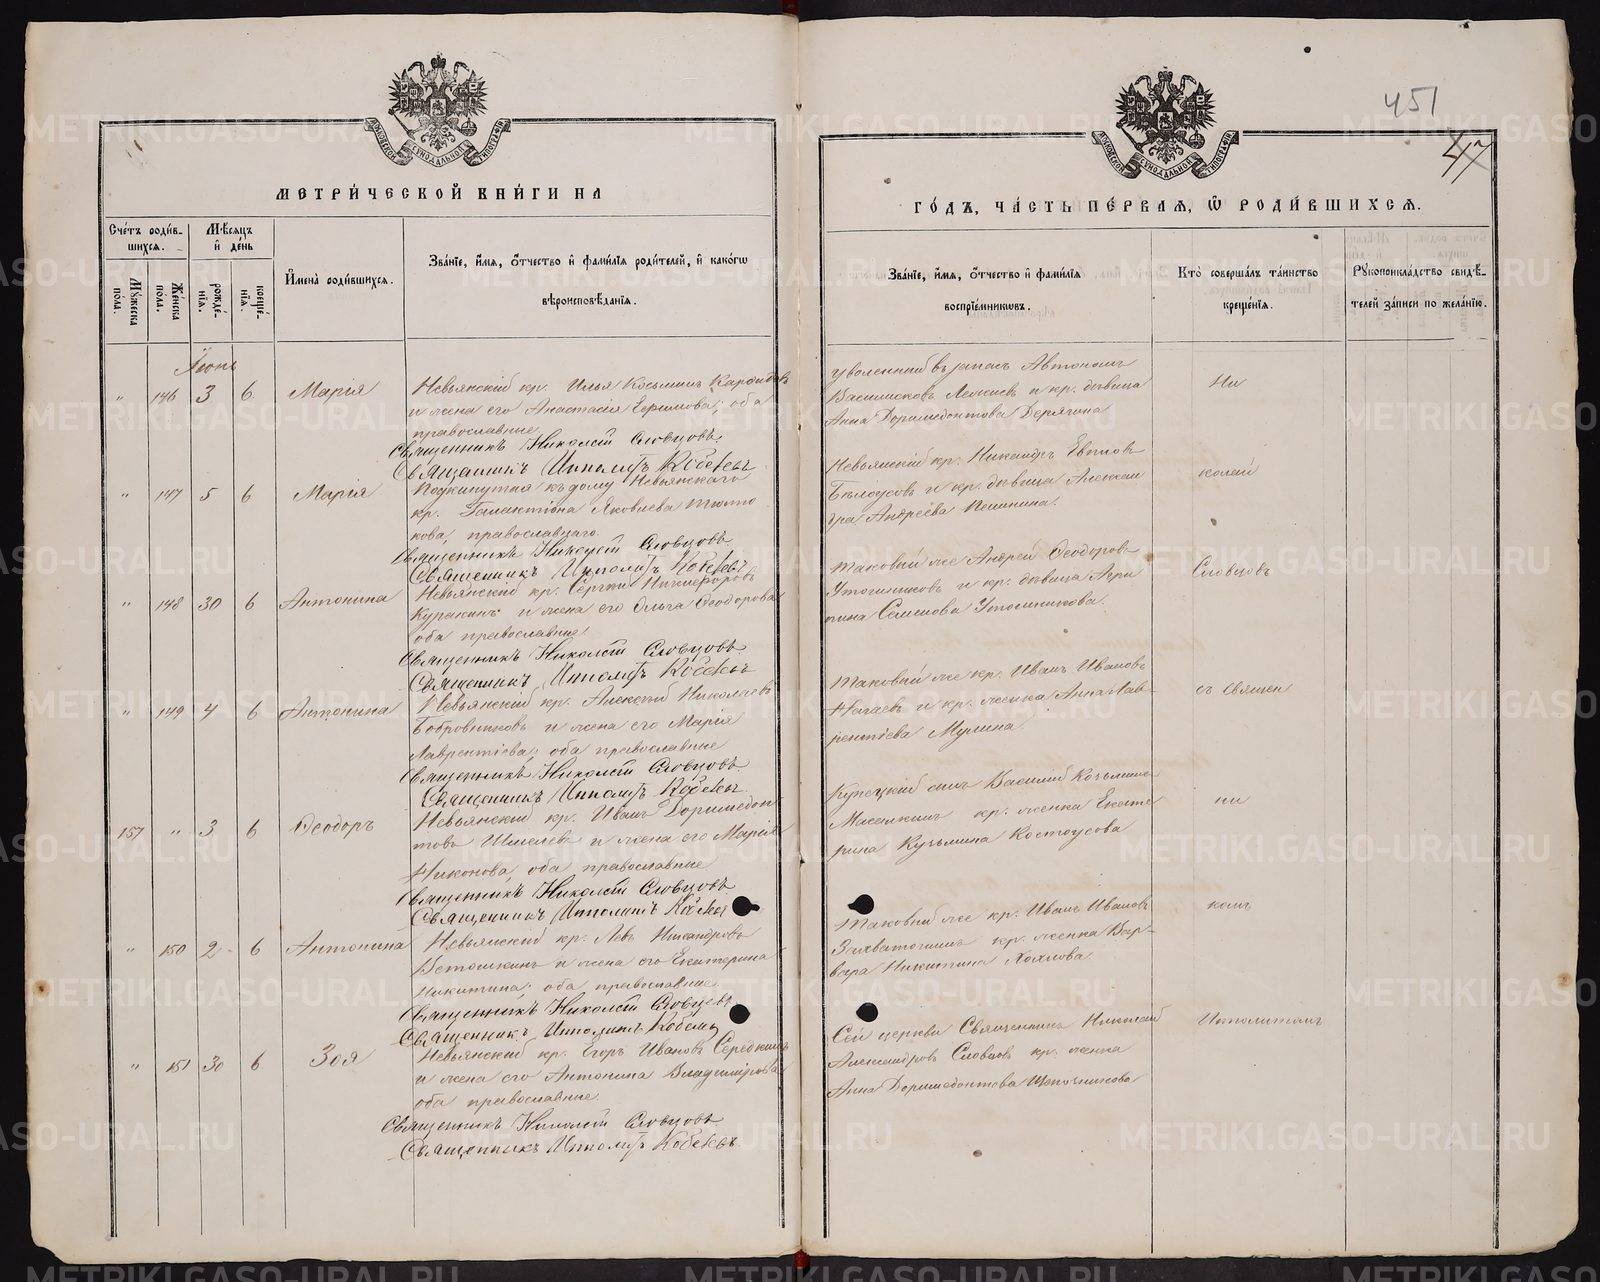 МЕТРИ́ЧЕСКОЙ КНИ́ГИ НА
Сче́тъ роди́вшихся.
Мѣ́сяцъ и де́нь
Му́жеска по́ла.
Же́нска по́ла.
рожде́нїя.
креще́нїя.
И҆мена̀ роди́вшихся.
Зва́нїе, и҆́мя, ѻ҆́тчество и҆ фами́лїя роди́телей, и҆ како́гѡ вѣроисповѣ́данїя.
Іюнь
" 146 3 6 Марія
Невьянскій кр. Илья Косьминъ
и жена его Анастасія Ефимова; оба
православные
Священникъ Николай Словцовъ
Священникъ Ипполитъ
" 147 5 6 Марія
Подкинутая къ дому Невьянскаго
кр. Галактіона Яковлева
православнаго
Священникъ Николай Словцовъ
Священникъ Ипполитъ
" 148 30 6 Антонина
Невьянскій кр. Сергій Никифоровъ
Куракинъ и жена его Ольга Ѳеодорова
оба православные
Священникъ Николай Словцовъ
Священникъ Ипполитъ
" 149 4 6 Антонина
Невьянскій кр. Алексѣй Николаевъ
Бобровниковъ и жена его Марія
Лаврентіева; оба православные
Священникъ Николай Словцовъ
Священникъ Ипполитъ
157 " 3 6 Ѳеодоръ
Невьянскій кр. Иванъ Доримедон
товъ и жена его Марія
Никонова, оба православные
Священникъ Николай Словцовъ
Священникъ Ипполитъ
" 150 2 6 Антонина
Невьянскій кр. Левъ Никандровъ
и жена его Екатерина
Никитина; оба православные
Священникъ Николай Словцовъ
Священникъ Ипполитъ
" 151 30 6 Зоя
Невьянскій кр. Егоръ Ивановъ Середкинъ
и жена его Антонина Владимірова
оба православные
Священникъ Николай Словцовъ
Священникъ Ипполитъ
451
47
ГО́ДЪ, ЧА́СТЬ ПЕ́РВАЯ, Ѡ҆ РОДИ́ВШИХСЯ.
Зва́нїе, и҆́мя, ѻ҆́тчество и҆ фами́лїя воспрїе́мникѡвъ.
Кто̀ соверша́лъ та́инство креще́нїя.
Рꙋкоприкла́дство свидѣ́телей за́писи по жела́нїю.
уволенный въ запасъ Автономъ
и кр. дѣвица
Анна Доримедонтова
Невьянскій кр. Никандръ
Бѣлоусовъ и кр. дѣвица Алексан
дра Андреева
таковый же Андрей Ѳеодоровъ
Утошниковъ и кр. дѣвица Агри
пина Семенова Утошникова.
таковый же кр. Иванъ Ивановъ
и кр. женка Анна Лав-
рентіева Мулина
Купеческій сынъ Василій Козьминъ
кр. женка Екате
рина Кузьмина Костоусова
таковый же кр. Иванъ Ивановъ
кр. женка Вар-
вара Никитина
Сей церкви Священникъ Николай
Александровъ Словцовъ кр. женка
Анна Доримедонтова
Ни
колай
Словцовъ
съ священ
ни
комъ
Ипполитомъ
METRIKI.GASO-URAL.RU